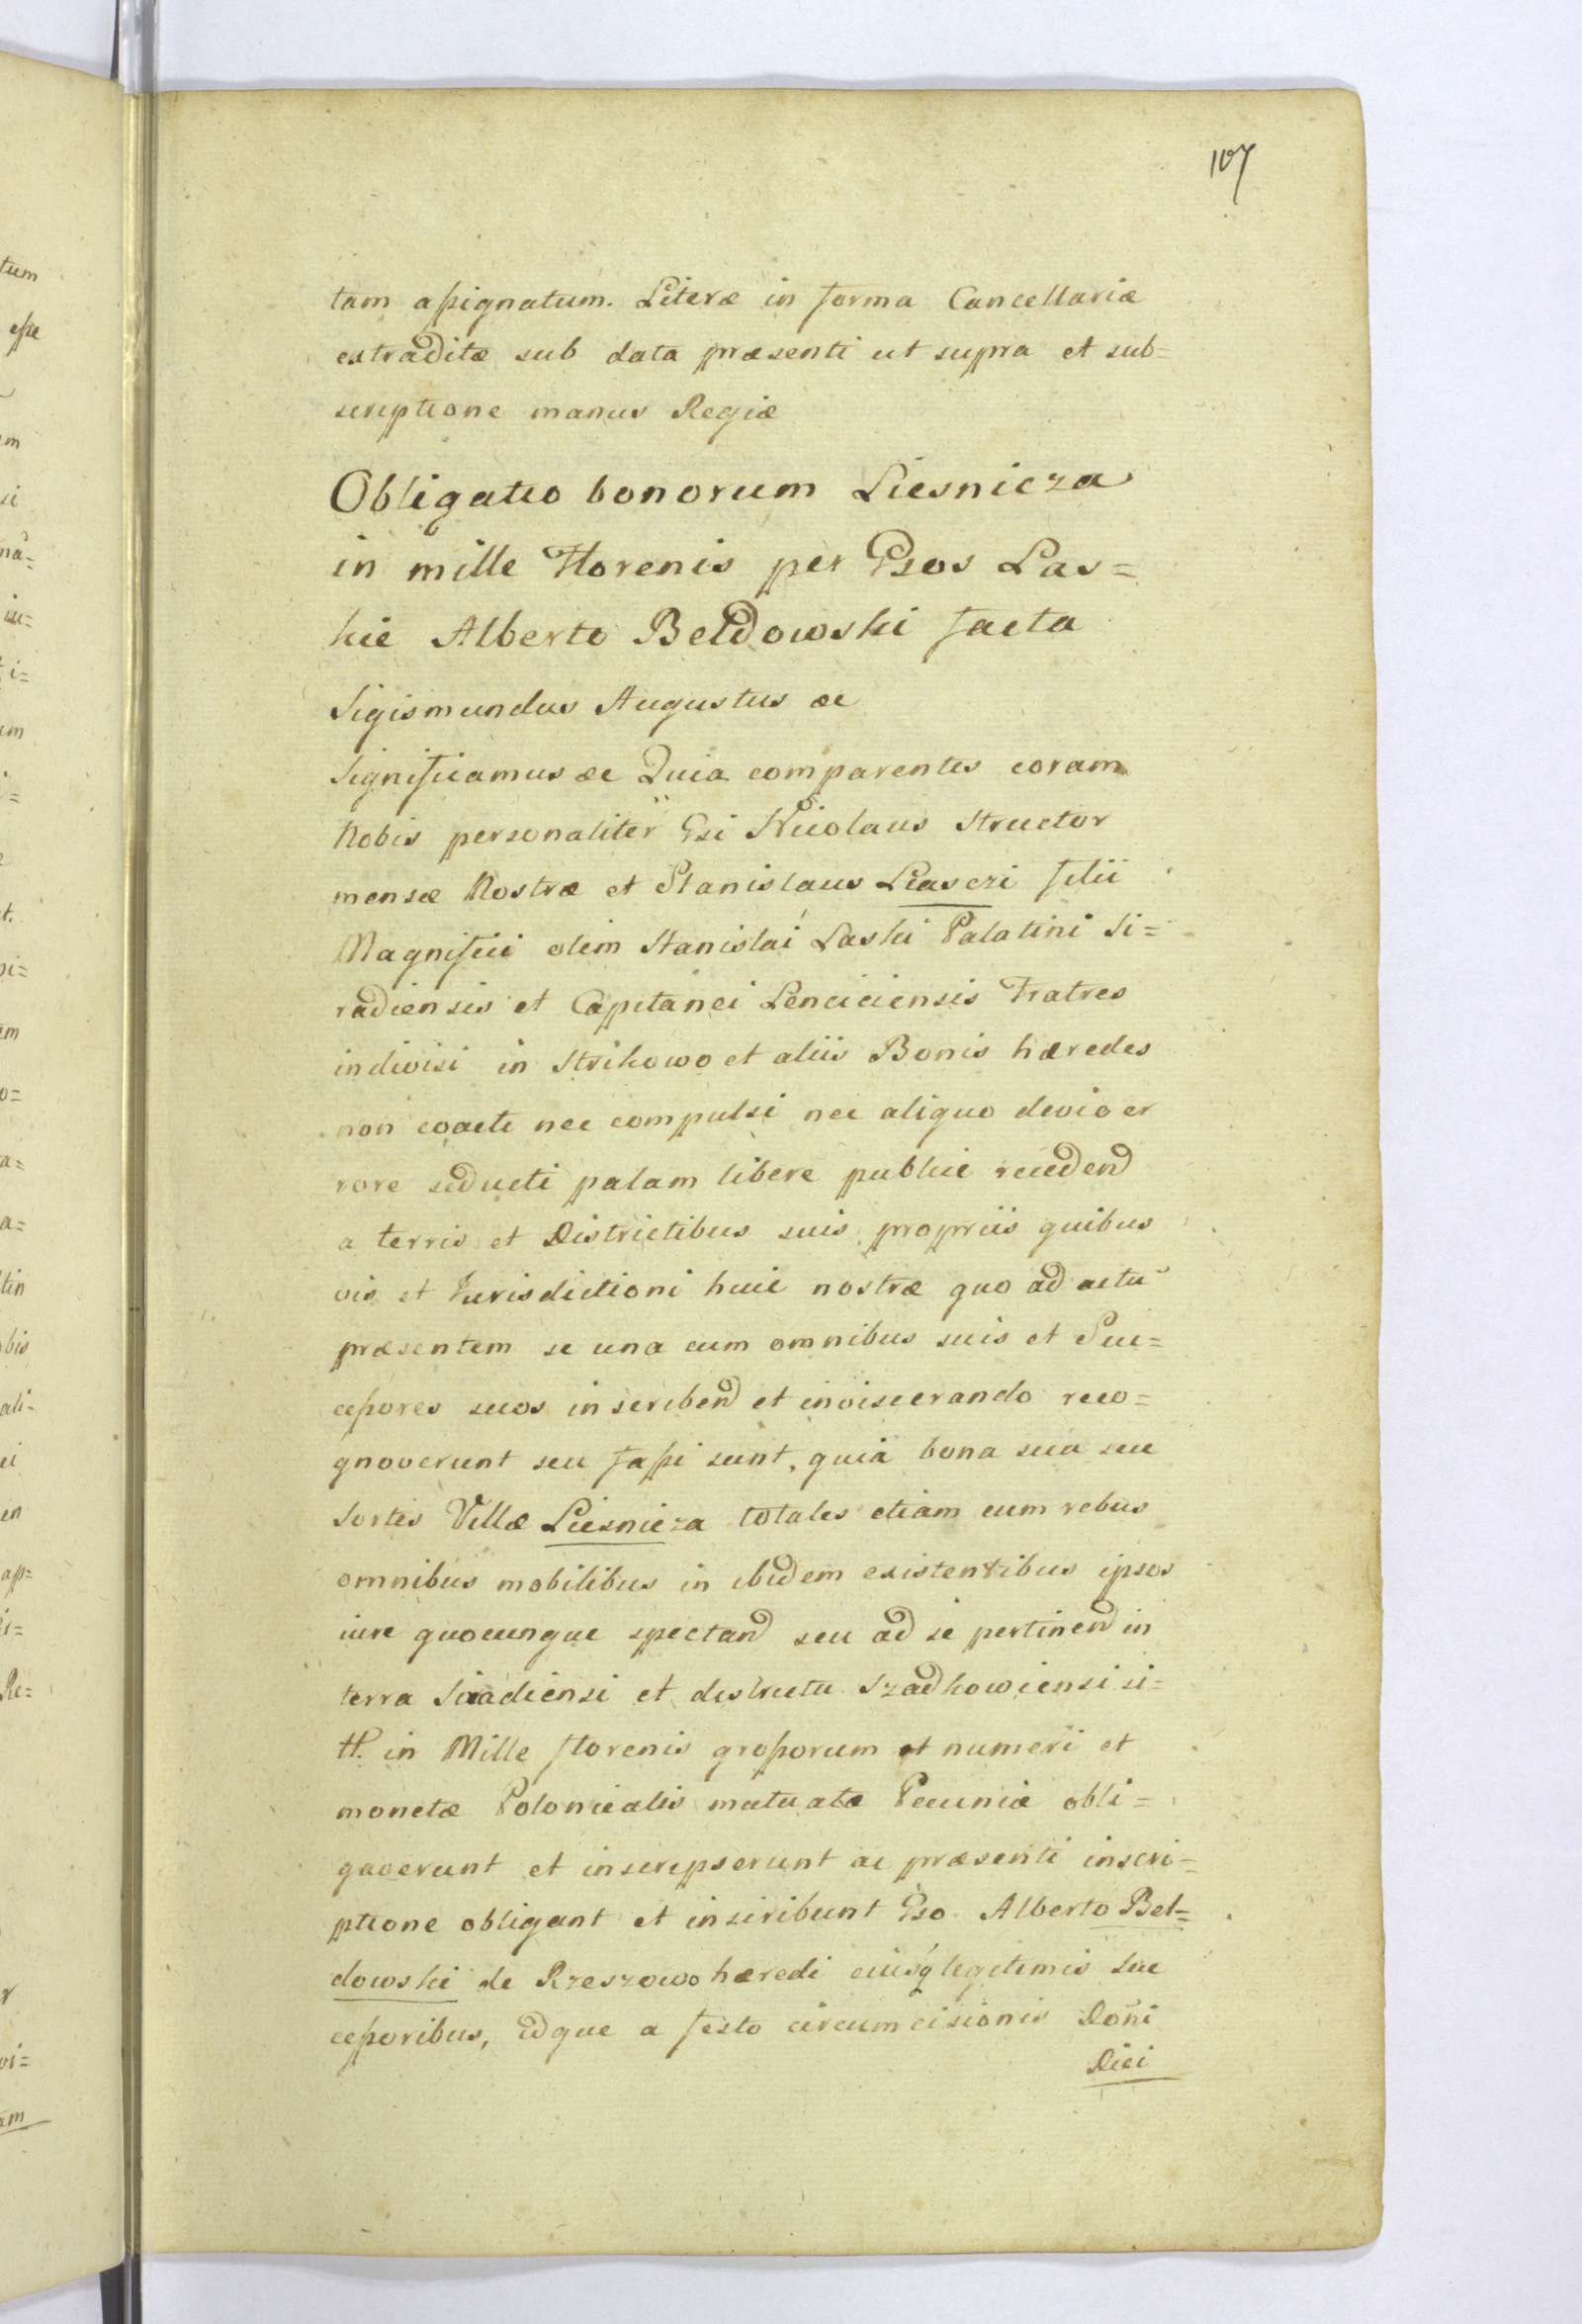 107
tam assignatum. Literæ in forma Cancellariæ
extraditæ sub data præsenti ut supra et sub=
scriptione manus Regiæ
Obligatio bonorum Liesnicza
in mille Florenis per Gsos Las=
kie Alberto Beldowski facta
Sigismundus Augustus &c
Significamus &c Quia comparentes coram
Nobis personaliter Gsi Nicolaus Structor
mensæ Nostræ et Stanislaus Liasczi filii
Magnifici olim Stanislai Laski Palatini Si=
radiensis et Capitanei Lenciciensis Fratres
indivisi in Strikowo et aliis Bonis hæredes
non coacti nec compulsi nec aliquo devio er
rore seducti palam libere publice recedend
a terris et Districtibus suis propriis quibus
vis et Iurisdictioni huic nostræ quo ad actū
præsentem se una cum omnibus suis et Suc=
cessores suos inscribend et inviscerando reco=
gnoverunt seu fassi sunt, quia bona sua seu
Sortes Villæ Liesnicza totales etiam cum rebus
omnibus mobilibus in ibidem existentibus ipsos
iure quocunque spectand seu ad se pertinend in
terra Siradiensi et districtu Szadkowiensi si=
tt. in Mille florenis grossorum et numeri et
monetæ Polonicalis mutuatæ Pecuniæ obli=
gaverunt et inscripserunt ac præsenti inscri=
ptione obligant et inscribunt Gso Alberto Bel=
dowski de Rzeszowo hæredi eiusq legitimis Suc
cessoribus, idque a festo circumcisionis Doni
Dici
tum
esse
m
ci
na=
iu=
i=
um
i=
t.
pi=
um
o=
a=
a=
tin
obis
ali=
ci
en
ap=
i=
Re=
r
vi=
am